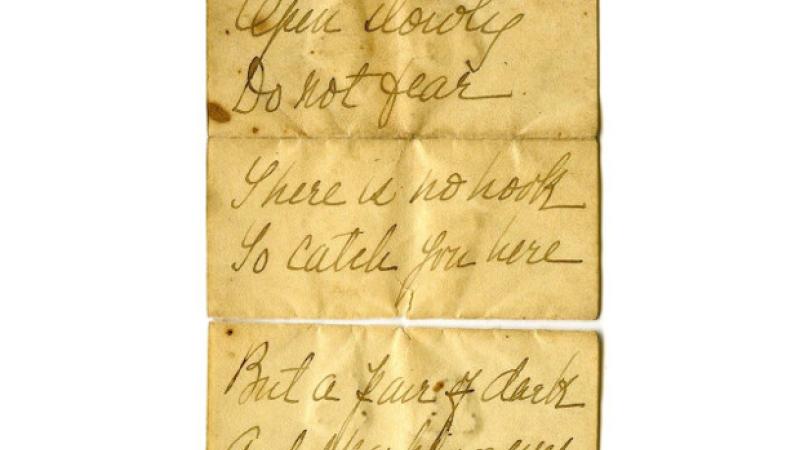 Open slowly
Do not fear
There is no hook
To catch you here
But a pair of dark